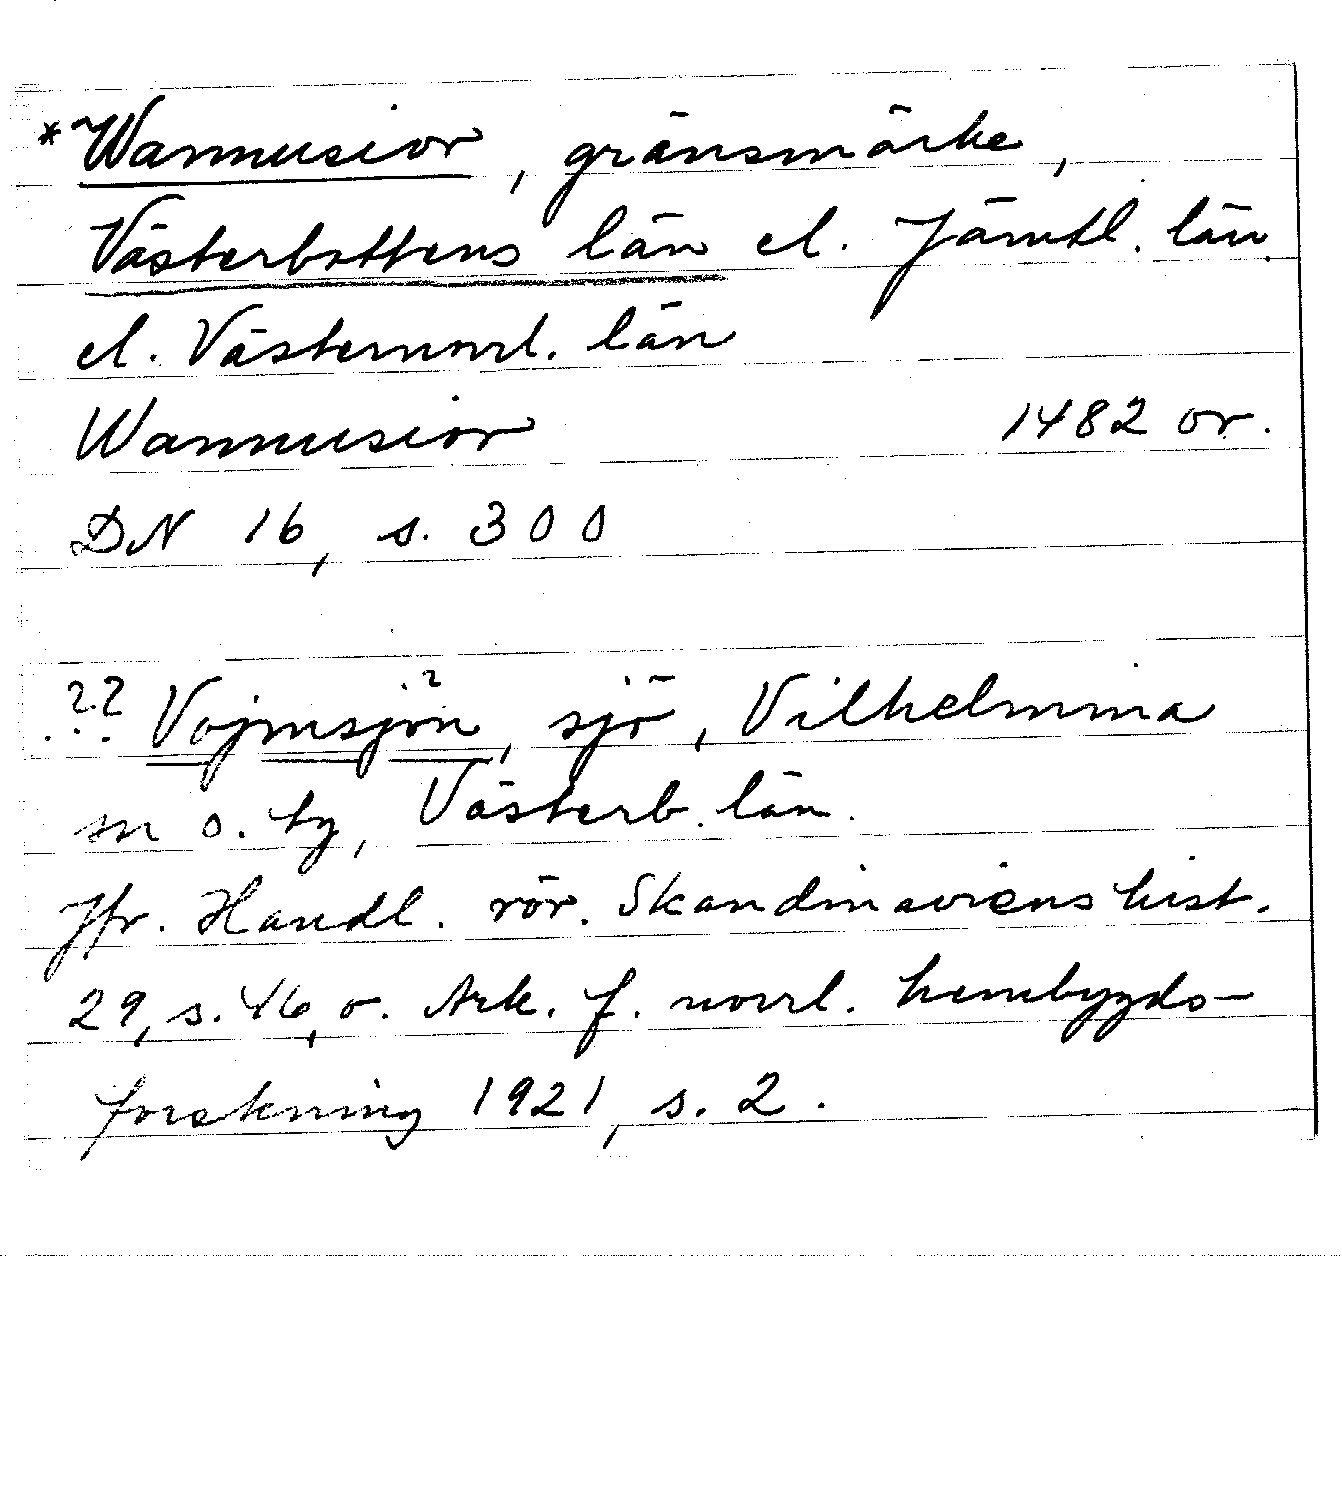 *Wannusior, gränsmärke,
Västerbottens län el. Jämtl. län
el. Västernorrl. län
Wannusior 1482 or.
DN 16, s. 300
?? Vojmsjön, sjö, Vilhelmina
sn o. ty, Västerb. län.
Jfr. Handl. rör. Skandinaviens hist.
29, s. 46, o. Ark. f. norrl. hembygds-
forskning 1921, s. 2.